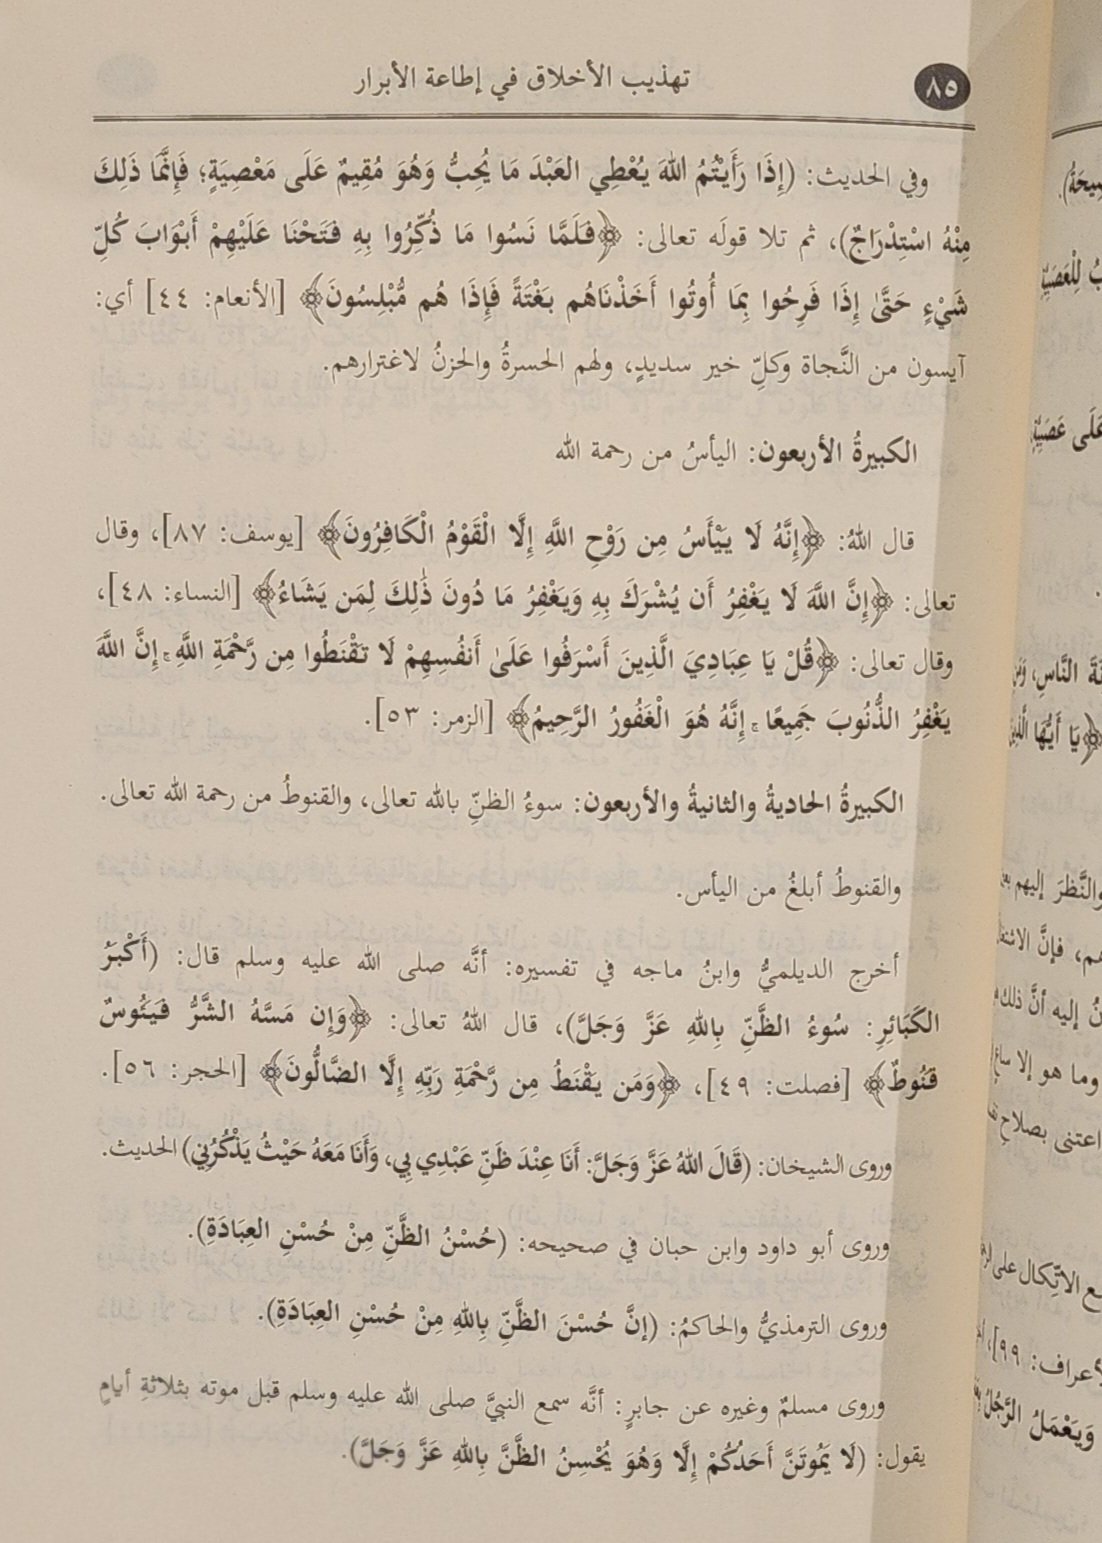 تهذيب الأخلاق في إطاعة الأبرار
٨٥
وفي الحديث: (إِذَا رَأَيْتُمُ اللهَ يُعْطِي العَبْدَ مَا يُحِبُّ وَهُوَ مُقِيمٌ عَلَى مَعْصِيَةٍ؛ فَإِنَّمَا ذَلِكَ
مِنْهُ اسْتِدْرَاجٌ)، ثم تلا قولَه تعالى: ﴿فَلَمَّا نَسُوا مَا ذُكِّرُوا بِهِ فَتَحْنَا عَلَيْهِمْ أَبْوَابَ كُلِّ
شَيْءٍ حَتَّىٰ إِذَا فَرِحُوا بِمَا أُوتُوا أَخَذْنَاهُم بَغْتَةً فَإِذَا هُم مُّبْلِسُونَ﴾ [الأنعام: ٤٤] أي:
آيسون من النَّجاة وكلِّ خير سديدٍ، ولهم الحسرةُ والحزنُ لاغترارهم.
الكبيرةُ الأربعون: اليأسُ من رحمة الله
قال اللهُ: ﴿إِنَّهُ لَا يَيْأَسُ مِن رَوْحِ اللَّهِ إِلَّا الْقَوْمُ الْكَافِرُونَ﴾ [يوسف: ٨٧]، وقال
تعالى: ﴿إِنَّ اللَّهَ لَا يَغْفِرُ أَن يُشْرَكَ بِهِ وَيَغْفِرُ مَا دُونَ ذَٰلِكَ لِمَن يَشَاءُ﴾ [النساء: ٤٨]،
وقال تعالى: ﴿قُلْ يَا عِبَادِيَ الَّذِينَ أَسْرَفُوا عَلَىٰ أَنفُسِهِمْ لَا تَقْنَطُوا مِن رَّحْمَةِ اللَّهِ ۚ إِنَّ اللَّهَ
يَغْفِرُ الذُّنُوبَ جَمِيعًا ۚ إِنَّهُ هُوَ الْغَفُورُ الرَّحِيمُ﴾ [الزمر: ٥٣].
الكبيرةُ الحاديةُ والثانيةُ والأربعون: سوءُ الظنِّ بالله تعالى، والقنوطُ من رحمة الله تعالى.
والقنوطُ أبلغُ من اليأس.
أخرج الديلميُّ وابنُ ماجه في تفسيره: أنَّه صلى الله عليه وسلم قال: (أَكْبَرُ
الكَبَائِرِ: سُوءُ الظَّنِّ بِاللهِ عَزَّ وَجَلَّ)، قال اللهُ تعالى: ﴿وَإِن مَسَّهُ الشَّرُّ فَيَئُوسٌ
قَنُوطٌ﴾ [فصلت: ٤٩]، ﴿وَمَن يَقْنَطُ مِن رَّحْمَةِ رَبِّهِ إِلَّا الضَّالُّونَ﴾ [الحجر: ٥٦].
وروى الشيخان: (قَالَ اللهُ عَزَّ وَجَلَّ: أَنَا عِنْدَ ظَنِّ عَبْدِي بِي، وَأَنَا مَعَهُ حَيْثُ يَذْكُرُنِي) الحديث.
وروى أبو داود وابن حبان في صحيحه: (حُسْنُ الظَّنِّ مِنْ حُسْنِ العِبَادَةِ).
وروى الترمذيُّ والحاكمُ: (إنَّ حُسْنَ الظَّنِّ بِاللهِ مِنْ حُسْنِ العِبَادَةِ).
وروى مسلمٌ وغيره عن جابرٍ: أنَّه سمع النبيَّ صلى الله عليه وسلم قبل موته بثلاثةِ أيامٍ
يقول: (لَا يَمُوتَنَّ أَحَدُكُمْ إِلَّا وَهُوَ يُحْسِنُ الظَّنَّ بِاللهِ عَزَّ وَجَلَّ).
عَلَى عَصَبِيَّةٍ
النَّاسِ،
﴿يَا أَيُّهَا
والنَّظرَ إليهم
هم، فإنَّ
إليه أنَّ ذلك
وما هو إلا
اعتنى بصلاحِ
الاتِّكال على
٩٩]،
وَيَعْمَلُ الرَّجُلُ